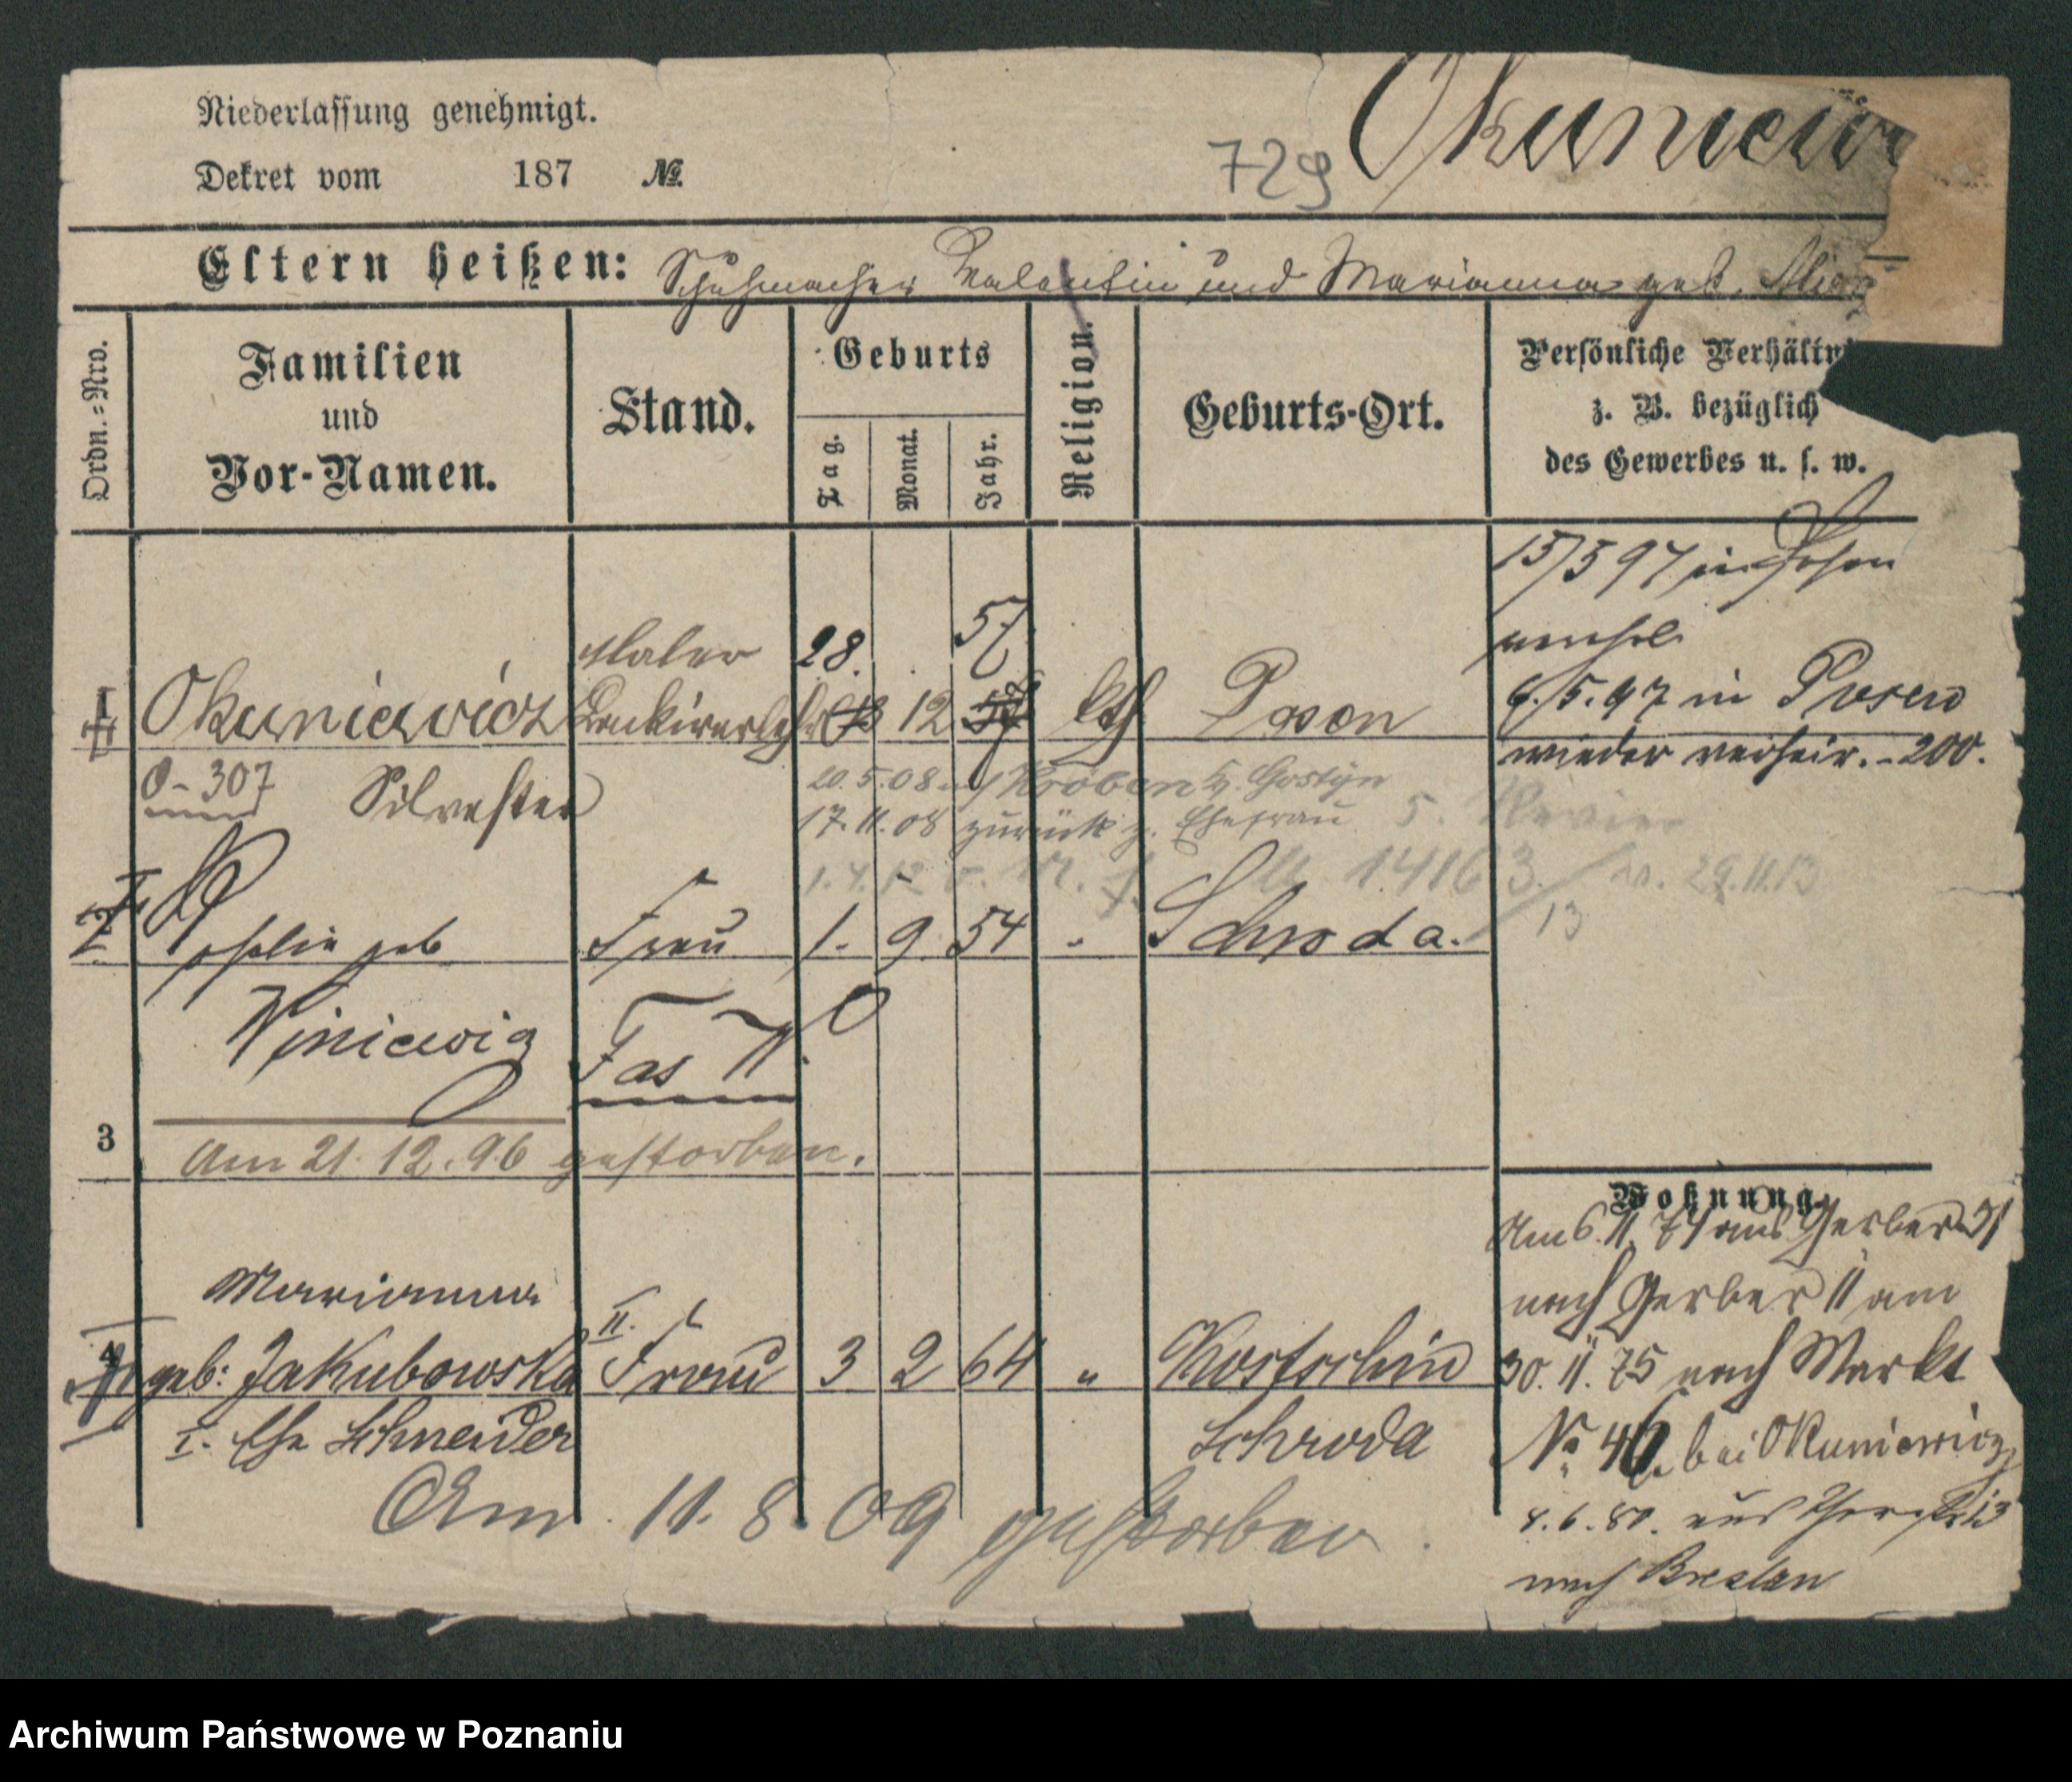 Niederlassung genehmigt.
Dekret vom 187 №
729
Okuniew
Eltern heißen: Schuhmacher Valentin und Marianna geb.
Ordn.=Nro.
Familien
und
Vor-Namen.
Stand.
Geburts
Tag.
Monat.
Jahr.
Religion.
Geburts-Ort.
Persönliche Verhältni
z. B. bezüglich
des Gewerbes u. s. w.
15/3 97 in Posen
6. 5. 97 in Posen
wieder verheir. - 200.
Maler 28. 57
1 Okuniewicz 12 kth Posen
O - 307 Silvester
20. 5. 08 Kröben Gostyn
17. 11. 08 zurück z. Ehefrau 5. Revier
1. 4. 12 14163/13 29.11.13
2 geb Frau 1. 9. 54 " Schroda.
Winiewicz
Fas W.
3
Am 21. 12. 96 gestorben.
Wohnung.
Am 6. 11. 74 aus Gerber 51
nach Gerber 11 am
30. 11. 75 nach Markt
№ 46. bei Okuniewicz
8. 6. 80. aus
nach Breslau
Marianna
4 geb: Jakubowska II. Frau 3 2 64 " Kostschin
I. Ehe Schneider Schroda
Am 11. 8. 09 gestorben
Archiwum Państwowe w Poznaniu